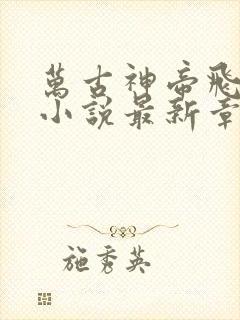 萬古神帝飛
小說最新章
施秀英